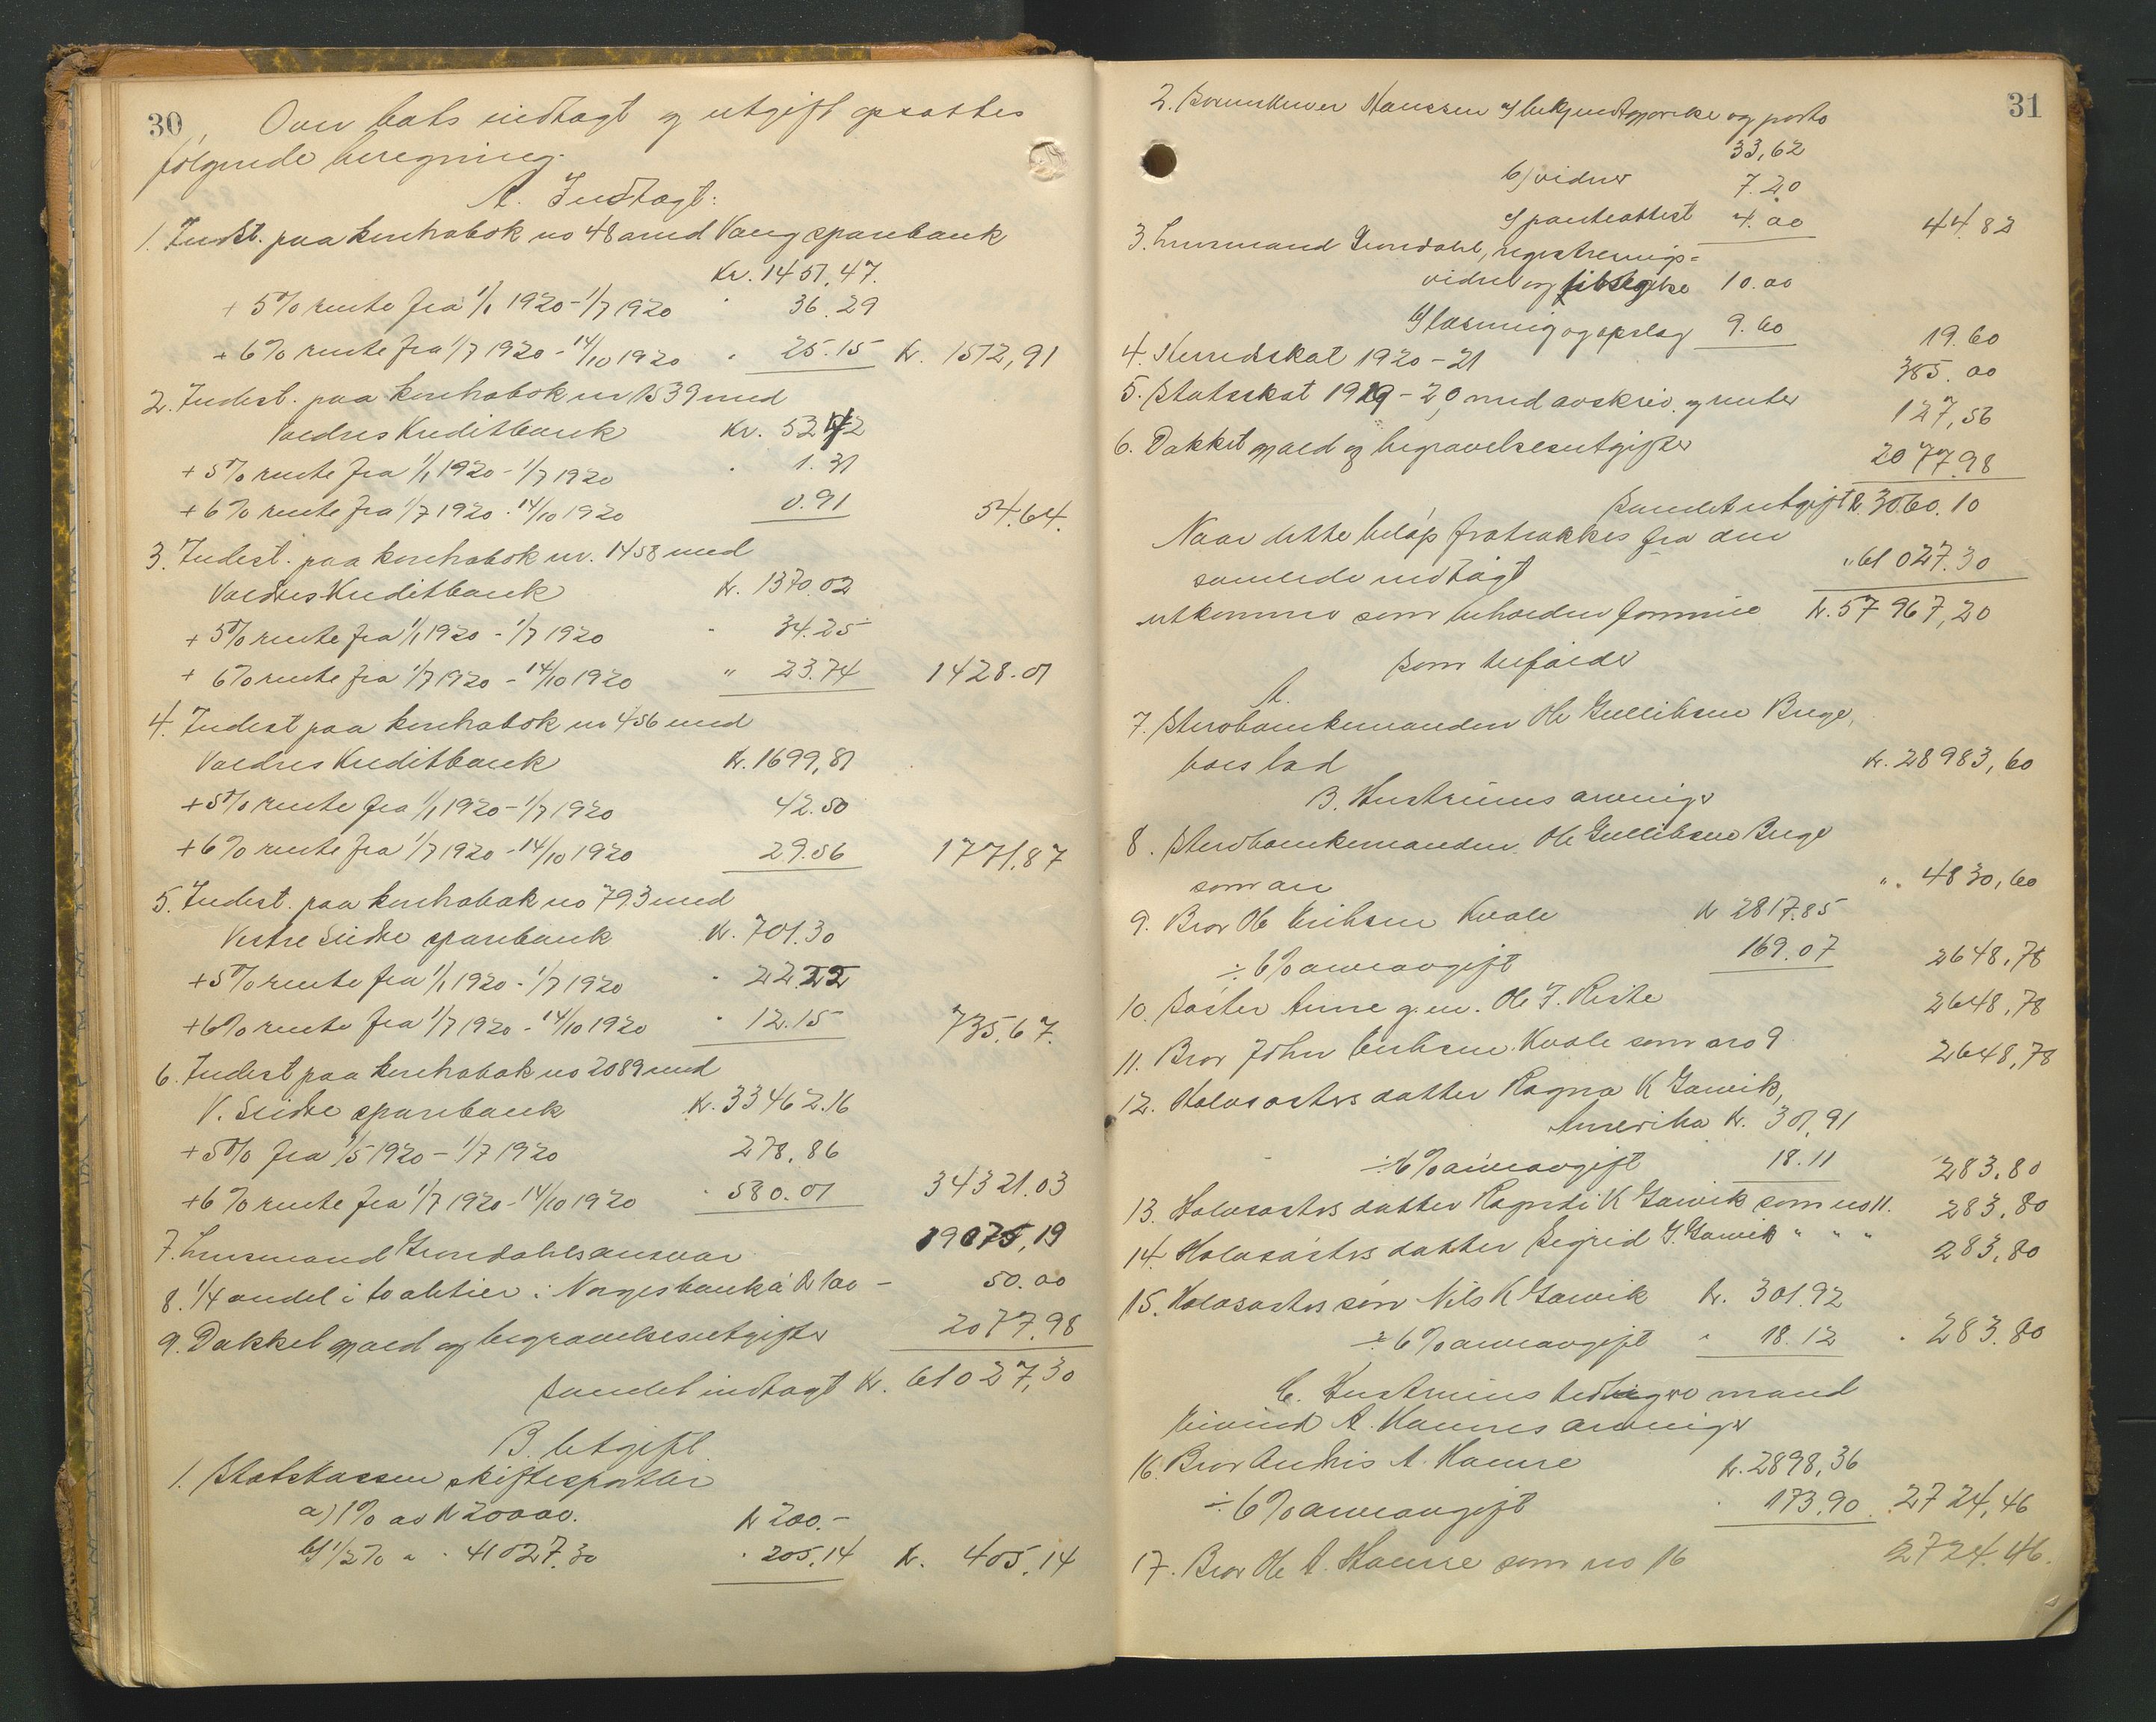 30
Over boets indtægt og utgift opsattes
følgende beregning.
A. Indtægt:
1. Indst. paa kontrabok no 48 a med Vang sparebank
Kr. 1451,47.
+ 5% rente fra 1/1 1920 - 1/7 1920 " 36.29
+ 6% rente fra 1/7 1920 - 14/10 1920 " 25.15 Kr. 1512,91
2. Indest. paa kontrabok no 1539 med
Valdres Kreditbank Kr. 52.42
+ 5% rente fra 1/1 1920 - 1/7 1920 " 1.31
+ 6% rente fra 1/7 1920 - 14/10 1920 0.91 54.64.
3. Indest. paa kontrabok nr. 1458 med
Valdres Kreditbank Kr. 1370.02
+ 5% rente fra 1/1 1920 - 1/7 1920 " 34.25
+ 6% rente fra 1/7 1920 - 14/10 1920 " 23.74 1428.01
4. Indest paa kontrabok no 456 med
Valdres Kreditbank Kr. 1699,81
+ 5% rente fra 1/1 1920 - 1/7 1920 42.50
+ 6% rente fra 1/7 1920 - 14/10 1920 29.56 1771.87
5. Indest. paa kontrabok no 793 med
Vestre Slidre sparebank Kr. 701.30
+ 5% rente fra 1/1 1920 - 1/7 1920 " 22.22
+ 6% rente fra 1/7 1920 - 14/10 1920 " 12.15 735.67.
6. Indest paa kontrabok no 2089 med
V. Slidre sparebank Kr. 33462.16
+ 5% fra 1/5 1920 - 1/7 1920 278.86
+ 6% rente fra 1/7 1920 - 14/10 1920 " 580.01 34321.03
7. Lensmand Grøndahls ansvar 19075,19
8. 1/4 andel i to aktier i Norges bank á Kr 100 - 50.00
9. Dækket gjæld og begravelsesutgifter 2077.98
Samlet indtægt Kr. 61027,30
B. Utgift.
1. Statskassen skiftesportler
a) 1% av Kr 20000. Kr 200.-
b) 1/2% " " 41027.30 " 205.14 Kr. 405.14
31
2. Sorenskriver Hanssen a) bekjendtgjørelse og porto
33,62
b) vidner 7.20
c) panteattest 4.00 44.82
3. Lensmand Grøndahl, registrerings-
vidner og 10.00
b) læsning og opslag 9.60 19.60
4. Herredskat 1920-21 385.00
5. Statsskat 1919-20 med avskriv. og renter 127,56
6. Dækket gjæld og begravelsesutgifter 2077.98
Samlet utgift Kr. 3060.10
Naar dette beløp fratrækkes fra den
samlede indtægt " 61027.30
utkommer som beholden formue Kr. 57967,20
som tilfalder
A.
7. Sterbøenkemanden Ole Gulliksen Brege,
boeslod Kr. 28983,60
B. Hustruens arvinger
8. Sterbøenkemanden Ole Gulliksen Brege
som arv " 4830,60
9. Bror Ole Eriksen Kvale Kr 2817.85
÷ 6% arveavgift 169.07 2648,78
10. Søster Anne g.m. Ole T. Riste 2648,78
11. Bror John Eriksen Kvale som no 9 2648,78
12. Halvsøsters datter Ragna K Garvik,
Amerika Kr. 301,91
÷ 6% arveavgift 18.11 283.80
13. Halvsøsters datter Ragndi K Garvik som no 11. 283.80
14. Halvsøsters datter Sigrid G. Garvik " " " 283.80
15. Halvsøsters søn Nils K Garvik Kr. 301.92
÷ 6% arveavgift " 18.12 " 283.80
C. Hustruens tidligere mand
Eivind A. Hamres arvinger
16. Bror Andris A. Hamre Kr. 2898,36
÷ 6% arveavgift " 173.90 2724,46
17. Bror Ole A. Hamre som no 16 2724.46.